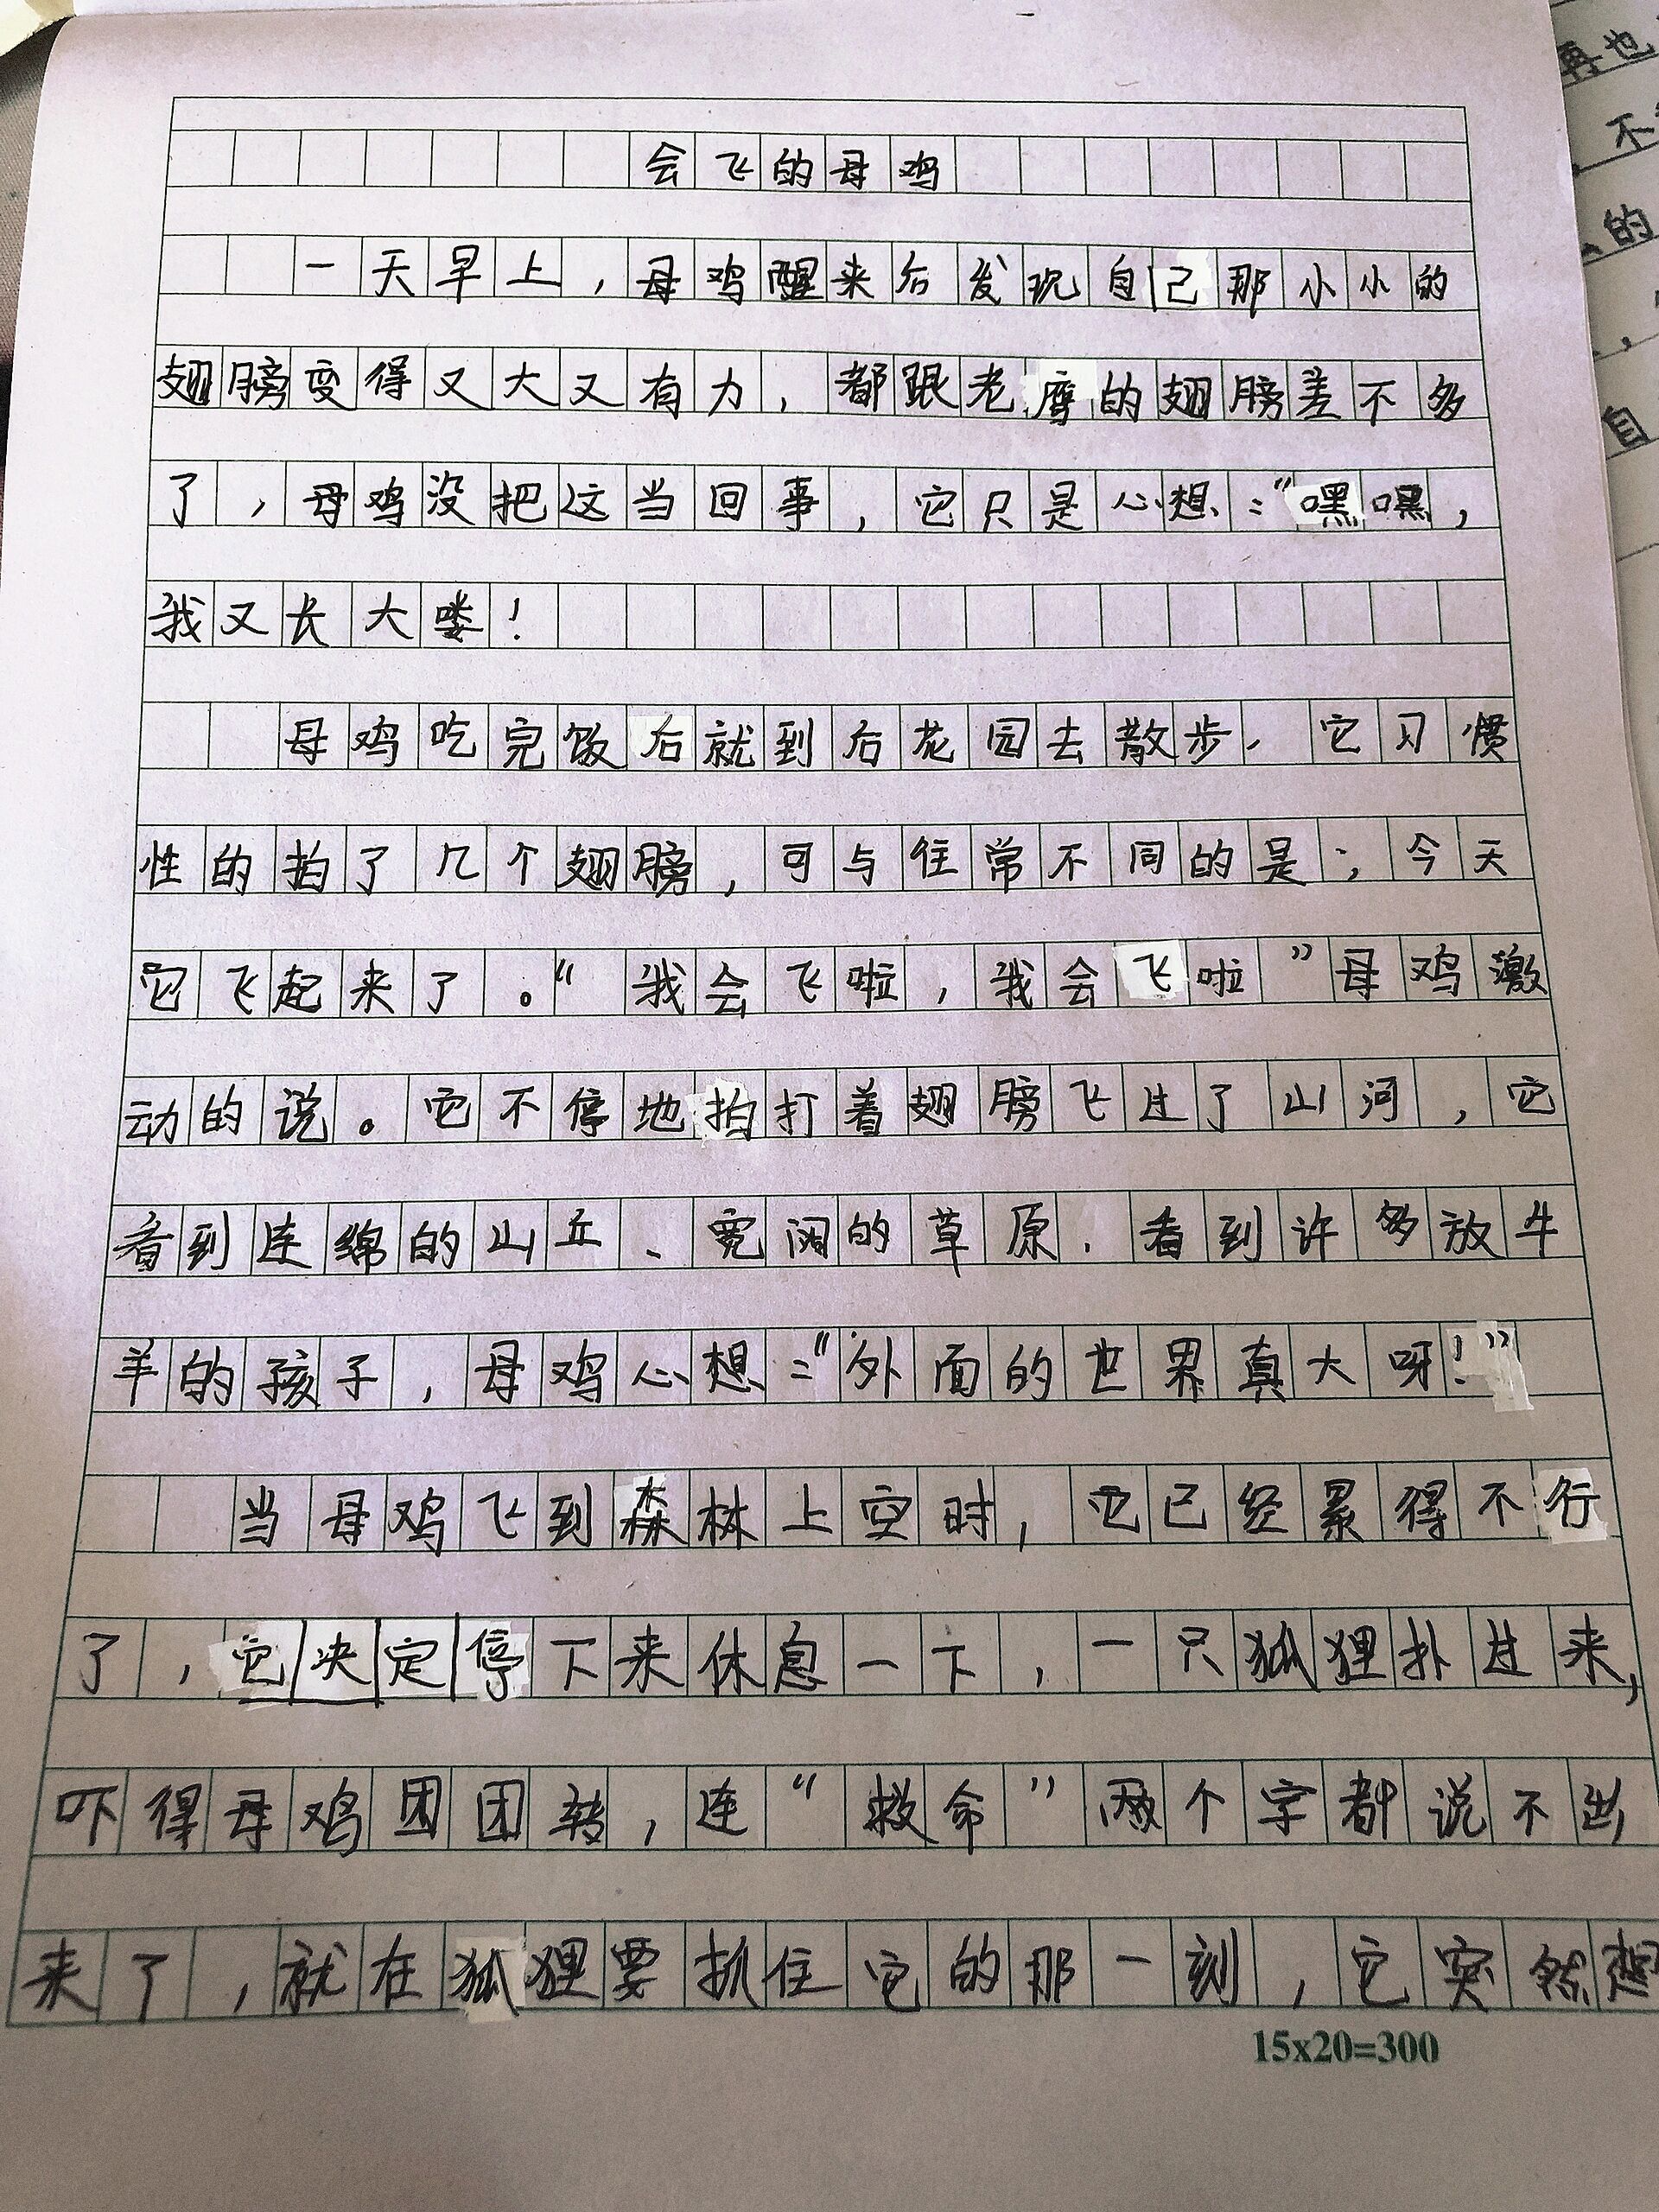 会飞的母鸡
一天早上，母鸡醒来后发现自己那小小的
翅膀变得又大又有力，都跟老鹰的翅膀差不多
了，母鸡没把这当回事，它只是心想："嘿嘿，
我又长大喽！
母鸡吃完饭后就到后花园去散步，它习惯
性的拍了几个翅膀，可与往常不同的是；今天
它飞起来了。"我会飞啦，我会飞啦"母鸡激
动的说。它不停地拍打着翅膀飞过了山河，它
看到连绵的山丘、宽阔的草原，看到许多放牛
羊的孩子，母鸡心想："外面的世界真大呀！"
当母鸡飞到森林上空时，它已经累得不行
了，它决定停下来休息一下，一只狐狸扑过来，
吓得母鸡团团转，连"救命"两个字都说不出
来了，就在狐狸要抓住它的那一刻，它突然想
15x20=300
再也
不
的
自